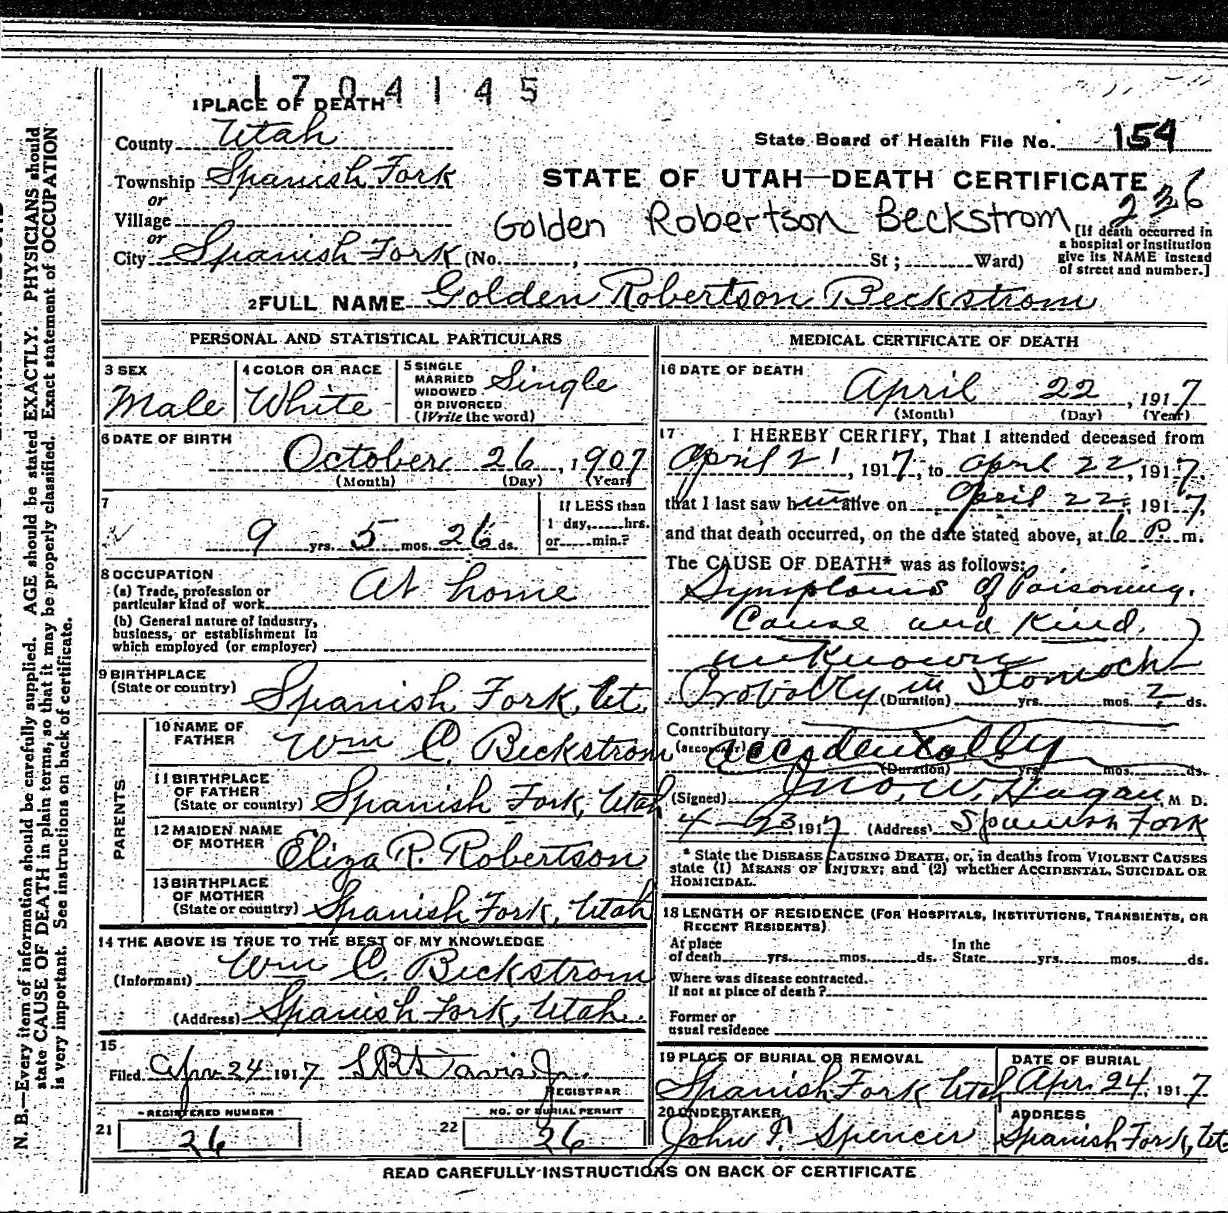 1704145
1 PLACE OF DEATH
County Utah
State Board of Health File No. 154
Township Spanish Fork
STATE OF UTAH—DEATH CERTIFICATE
236
or
Village
Golden Robertson Beckstrom
or
City Spanish Fork (No. , St ; Ward)
[If death occurred in
a hospital or institution
give its NAME instead
of street and number.]
2 FULL NAME Golden Robertson Beckstrom
PERSONAL AND STATISTICAL PARTICULARS
3 SEX
Male
4 COLOR OR RACE
White
5 SINGLE
MARRIED
WIDOWED
OR DIVORCED
(Write the word)
Single
6 DATE OF BIRTH
October 26, 1907
(Month) (Day) (Year)
7
9 yrs. 5 mos. 26 ds.
If LESS than
1 day, hrs.
or min.?
8 OCCUPATION
(a) Trade, profession or
particular kind of work At home
(b) General nature of industry,
business, or establishment in
which employed (or employer)
9 BIRTHPLACE
(State or country) Spanish Fork, Ut.
PARENTS
10 NAME OF
FATHER Wm C. Beckstrom
11 BIRTHPLACE
OF FATHER
(State or country) Spanish Fork, Utah
12 MAIDEN NAME
OF MOTHER Eliza R. Robertson
13 BIRTHPLACE
OF MOTHER
(State or country) Spanish Fork, Utah
14 THE ABOVE IS TRUE TO THE BEST OF MY KNOWLEDGE
(Informant) Wm C. Beckstrom
(Address) Spanish Fork, Utah.
15
Filed Apr 24 1917 Davis Jr.
REGISTRAR
REGISTERED NUMBER
21 26
NO. OF BURIAL PERMIT
22 26
MEDICAL CERTIFICATE OF DEATH
16 DATE OF DEATH
April 22, 1917
(Month) (Day) (Year)
17 I HEREBY CERTIFY, That I attended deceased from
April 21, 1917, to April 22, 1917,
that I last saw him alive on April 22, 1917,
and that death occurred, on the date stated above, at 6 P. m.
The CAUSE OF DEATH* was as follows:
Symptoms of Poisoning.
Cause and Kind,
unknown
Probably in Stomach
(Duration) yrs. mos. 2 ds.
Contributory
(SECONDARY) accidentally
(Duration) yrs. mos. ds.
(Signed) Jno. W. Hagan, M D.
4-23 1917 (Address) Spanish Fork
* State the DISEASE CAUSING DEATH, or, in deaths from VIOLENT CAUSES
state (1) MEANS OF INJURY; and (2) whether ACCIDENTAL, SUICIDAL OR
HOMICIDAL.
18 LENGTH OF RESIDENCE (FOR HOSPITALS, INSTITUTIONS, TRANSIENTS, OR
RECENT RESIDENTS)
At place
of death yrs. mos. ds.
In the
State yrs. mos. ds.
Where was disease contracted.
If not at place of death ?
Former or
usual residence
19 PLACE OF BURIAL OR REMOVAL
Spanish Fork Utah
DATE OF BURIAL
Apr. 24, 1917
20 UNDERTAKER
John T. Spencer
ADDRESS
Spanish Fork, Ut
READ CAREFULLY INSTRUCTIONS ON BACK OF CERTIFICATE
N. B.—Every item of information should be carefully supplied. AGE should be stated EXACTLY. PHYSICIANS should
state CAUSE OF DEATH in plain terms, so that it may be properly classified. Exact statement of OCCUPATION
is very important. See instructions on back of certificate.